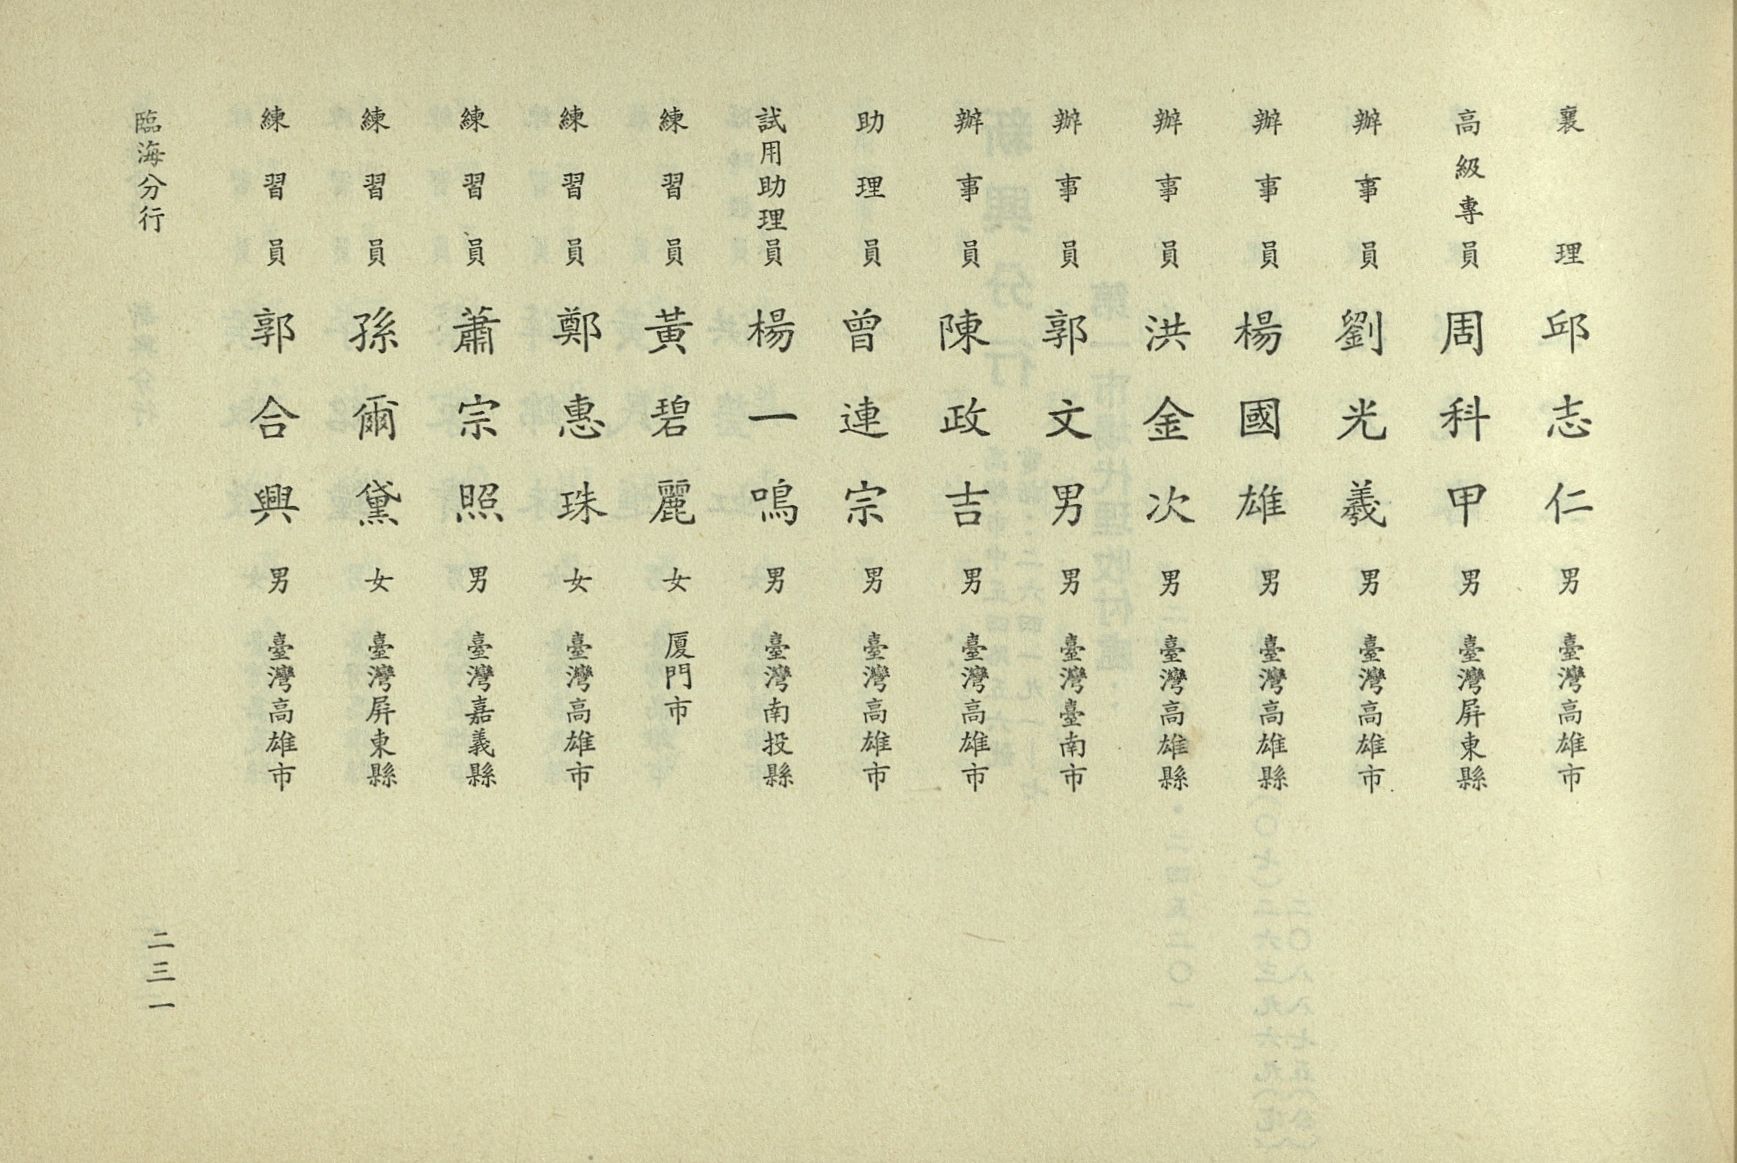 襄理 邱志仁 男 臺灣高雄市
高級專員 周科甲 男 臺灣屏東縣
辦事員 劉光羲 男 臺灣高雄市
辦事員 楊國雄 男 臺灣高雄縣
辦事員 洪金次 男 臺灣高雄縣
辦事員 郭文男 男 臺灣臺南市
辦事員 陳政吉 男 臺灣高雄市
助理員 曾連宗 男 臺灣高雄市
試用助理員 楊一鳴 男 臺灣南投縣
練習員 黃碧麗 女 厦門市
練習員 鄭惠珠 女 臺灣高雄市
練習員 蕭宗照 男 臺灣嘉義縣
練習員 孫爾黛 女 臺灣屏東縣
練習員 郭合興 男 臺灣高雄市
臨海分行 二三一